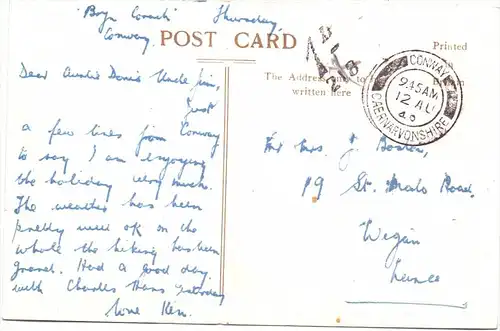 "Bryn Corach" Thursday
Conway
POST CARD
Printed
in
The Address only to be
written here
CONWAY
9.15AM
12 AU
40
CAERNARVONSHIRE
Dear Auntie Doris & Uncle Jim,
Just
a few lines from Conway
to say I am enjoying
the holiday very much.
The weather has been
pretty well ok on the
whole the hiking has been
grand. Had a good day
with Charles Hans yesterday
love Ken.
Mr & Mrs. J. Boston,
19 St. Malo Road,
Wigan
Lancs